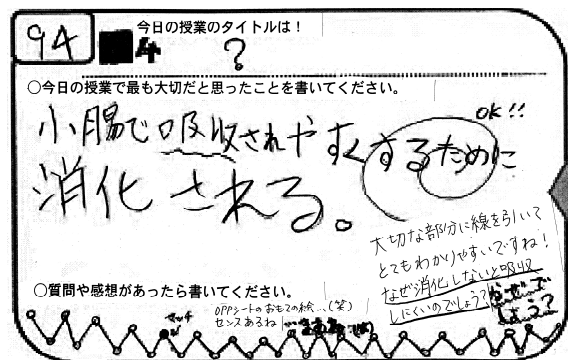 94
今日の授業のタイトルは！
4
?
○今日の授業で最も大切だと思ったことを書いてください。
OK!!
小腸で吸収されやすくするために
消化される。
大切な部分に線を引いて
とてもわかりやすいですね！
なぜ消化しないと吸収
しにくいのでしょう？
なぜで
しょう？
○質問や感想があったら書いてください。
OPPシートのおもての絵…(笑)
センスあるね